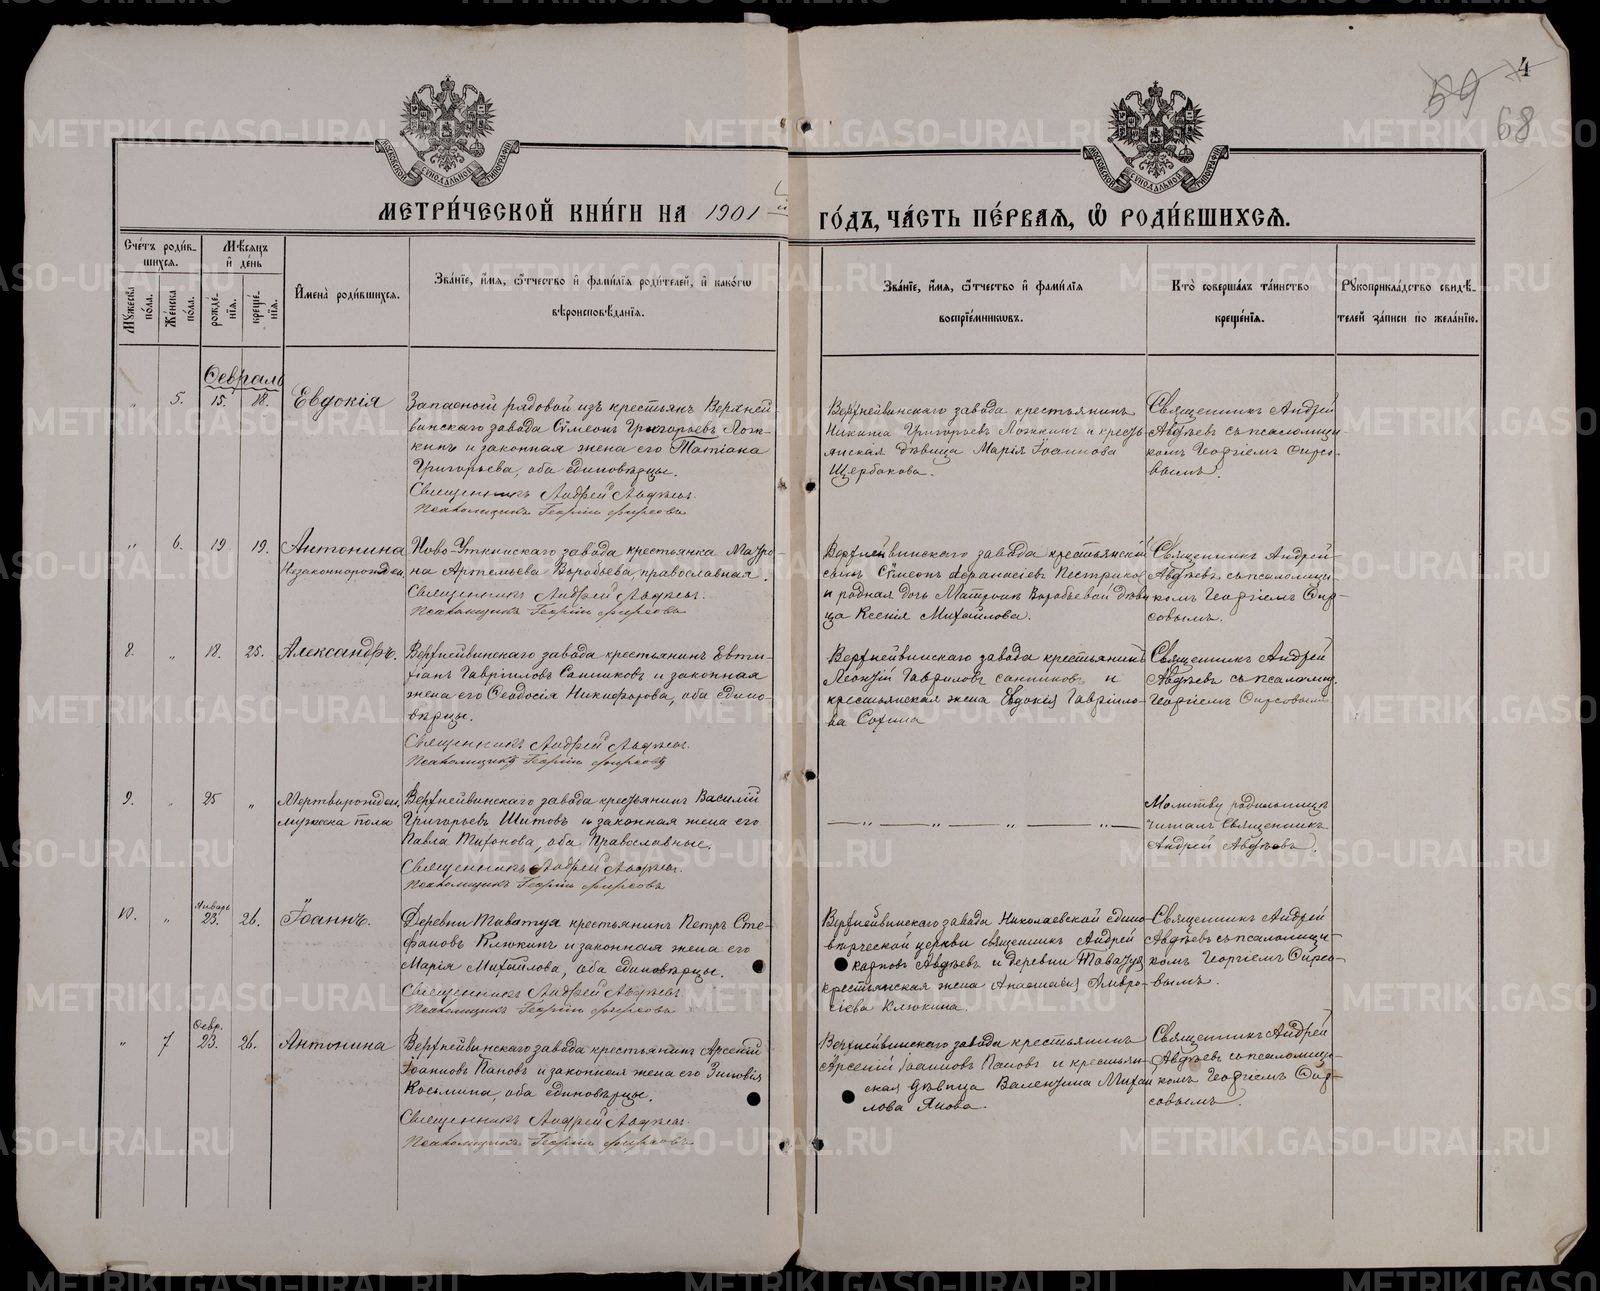 4
59
68
МЕТРИ́ЧЕСКОЙ КНИ́ГИ НА 1901 й
ГО́ДЪ, ЧА́СТЬ ПЕ́РВАЯ, Ѿ РОДИ́ВШИХСЯ.
Сче́тъ роди́в-
шихся.
Мѣ́сяцъ
и де́нь
Му́жеска по́ла.
Же́нска по́ла.
рожде́-
нїя.
креще́-
нїя.
Имена̀ роди́вшихся.
Зва́нїе, и́мя, ѻ҆́тчество и фами́лїя роди́телей, и како́гѡ
вѣроисповѣ́данїя.
Зва́нїе, и́мя, ѻ҆́тчество и фами́лїя
воспрїе́мниковъ.
Кто̀ соверша́лъ та́инство
креще́нїя.
Рꙋкоприкла́дство свидѣ́-
телей за́писи по жела́нїю.
Февраль
„ 5. 15. 18. Евдокія
Запасной рядовой изъ крестьянъ Верхней-
винскаго завода Сѵмеонъ Григорьевъ Лож-
кинъ и законная жена его Татіана
Григорьева, оба единовѣрцы.
Священникъ Андрей Авдѣевъ.
Псаломщикъ Георгій Фирсовъ
Верхнейвинскаго завода крестьянинъ
Никита Григорьевъ Ложкинъ и кресть-
янская дѣвица Марія Іоаннова
Щербакова.
Священникъ Андрей
Авдѣевъ съ псаломщи
комъ Георгіемъ Фирсо-
вымъ.
„ 6. 19 19. Антонина
Незаконнорожден.
Ново-Уткинскаго завода крестьянка Матро-
на Артемьева Воробьева, православная.
Священникъ Андрей Авдѣевъ.
Псаломщикъ Георгій Фирсовъ
Верхнейвинскаго завода крестьянскій
сынъ Сѵмеонъ Афанасіевъ Пестриков
и родная дочь Матроны Воробьевой дѣви
ца Ксенія Михайлова.
Священникъ Андрей
Авдѣевъ съ псаломщи-
комъ Георгіемъ Фир-
совымъ.
8. „ 18. 25. Александръ.
Верхнейвинскаго завода крестьянинъ Евти-
хіанъ Гавріиловъ Санниковъ и законная
жена его Ѳеодосія Никифорова, оба едино-
вѣрцы.
Священникъ Андрей Авдѣевъ.
Псаломщикъ Георгій Фирсовъ
Верхнейвинскаго завода крестьянинъ
Леонтій Гавриловъ Санниковъ и
крестьянская жена Евдокія Гавріило-
ва Сохина
Священникъ Андрей
Авдѣевъ съ псаломщ.
Георгіемъ Фирсовымъ
9. „ 25 „ Мертворожден.
мужеска пола
Верхнейвинскаго завода крестьянинъ Василій
Григорьевъ Шитовъ и законная жена его
Павла Тихонова, оба православные.
Священникъ Андрей Авдѣевъ.
Псаломщикъ Георгій Фирсовъ
— „ — „ — „ —
Молитву родильницѣ
читалъ Священникъ
Андрей Авдѣевъ.
Январь
10. „ 23. 26. Іоаннъ.
Деревни Таватуя крестьянинъ Петръ Сте-
фановъ Клюкинъ и законная жена его
Марія Михайлова, оба единовѣрцы.
Священникъ Андрей Авдѣевъ.
Псаломщикъ Георгій Фирсовъ
Верхнейвинскаго завода Николаевской едино-
вѣрческой церкви священникъ Андрей
Карповъ Авдѣевъ и деревни Таватуя
крестьянская жена Анастасія Амвро-
сіева Клюкина.
Священникъ Андрей
Авдѣевъ съ псаломщи-
комъ Георгіемъ Фирсо-
вымъ.
Февр.
„ 7 23. 26. Антонина
Верхнейвинскаго завода крестьянинъ Арсеній
Іоанновъ Пановъ и законная жена его Зиновія
Косьмина, оба единовѣрцы.
Священникъ Андрей Авдѣевъ.
Псаломщикъ Георгій Фирсовъ
Верхнейвинскаго завода крестьянинъ
Арсеній Іоанновъ Пановъ и крестьян-
ская дѣвица Валентина Михаи
лова Янова.
Священникъ Андрей
Авдѣевъ съ псаломщи-
комъ Георгіемъ Фир-
совымъ.
METRIKI.GASO-URAL.RU